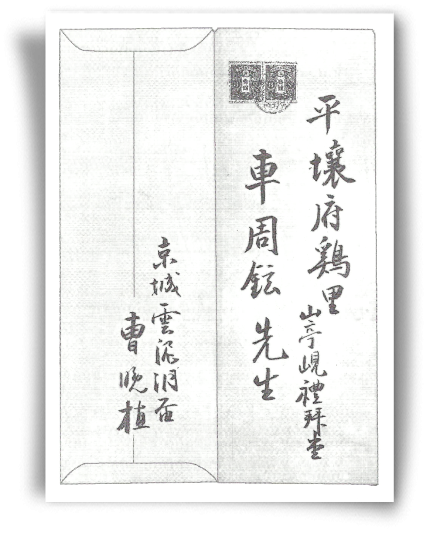 平壤府鷄里
山亭峴禮拜堂
車周鉉先生
京城雲泥洞
曹晩植